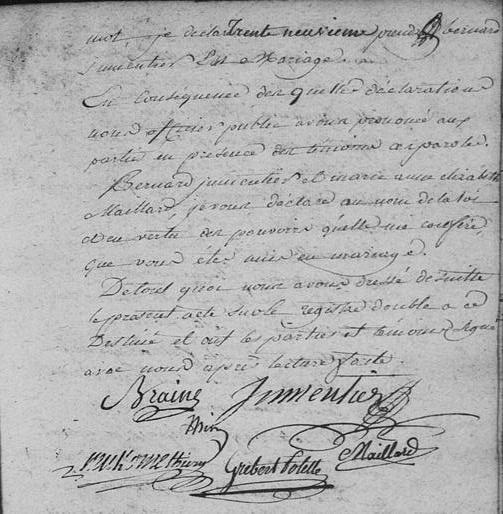 mot, je declar Trente neuvieme prendre bernard
Jumentier En Mariage.
En Consequence desquelles déclaration
nous officier public avons prononcé aux
parties en presence des témoins ces parole.
Bernard jumentier et marie anne elizabeth
Maillard, je vous déclare au nom de la loi
et en vertu des pouvoirs qu'elle ma conféré,
que vous etes unis en mariage.
De tout quoi nous avons dressé de suitte
le présent acte sur le registre double a ce
Destiné et ont les parties et temoins signé
avec nous après lecture faite.
Braine Jumentier
Thiery
Gribert Folette Maillard